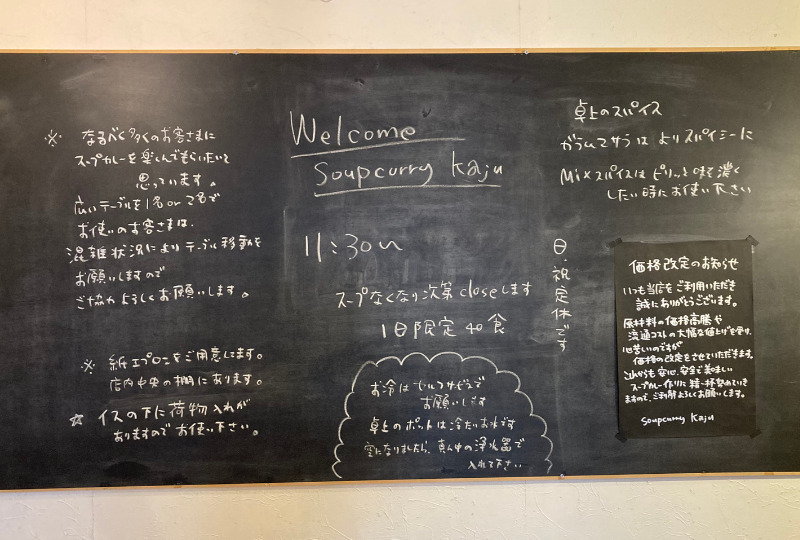 ※ なるべく多くのお客さまに
スープカレーを楽しんでもらいたいと
思っています。
広いテーブルを1名or2名で
お使いのお客さまは、
混雑状況によりテーブル移動を
お願いしますので
ご協力よろしくお願いします。
※ 紙エプロンをご用意してます。
店内中央の棚にあります。
☆ イスの下に荷物入れが
ありますのでお使い下さい。
Welcome
Soupcurry Kaju
11:30〜
スープなくなり次第closeします
1日限定40食
お冷はセルフサービスで
お願いします
卓上のポットは冷たいお水です
空になりましたら、真ん中の浄水器で
入れて下さい
日・祝定休です
卓上のスパイス
ガラムマサラは よりスパイシーに
Mixスパイスは ピリッと味を濃く
したい時にお使い下さい
価格改定のお知らせ
いつも当店をご利用いただき
誠にありがとうございます。
原材料の価格高騰や
流通コストの大幅な値上げを受け、
心苦しいのですが
価格の改定をさせていただきます。
これからも安心、安全で美味しい
スープカレー作りに精一杯努めていき
ますので、ご利用よろしくお願いします。
Soupcurry Kaju